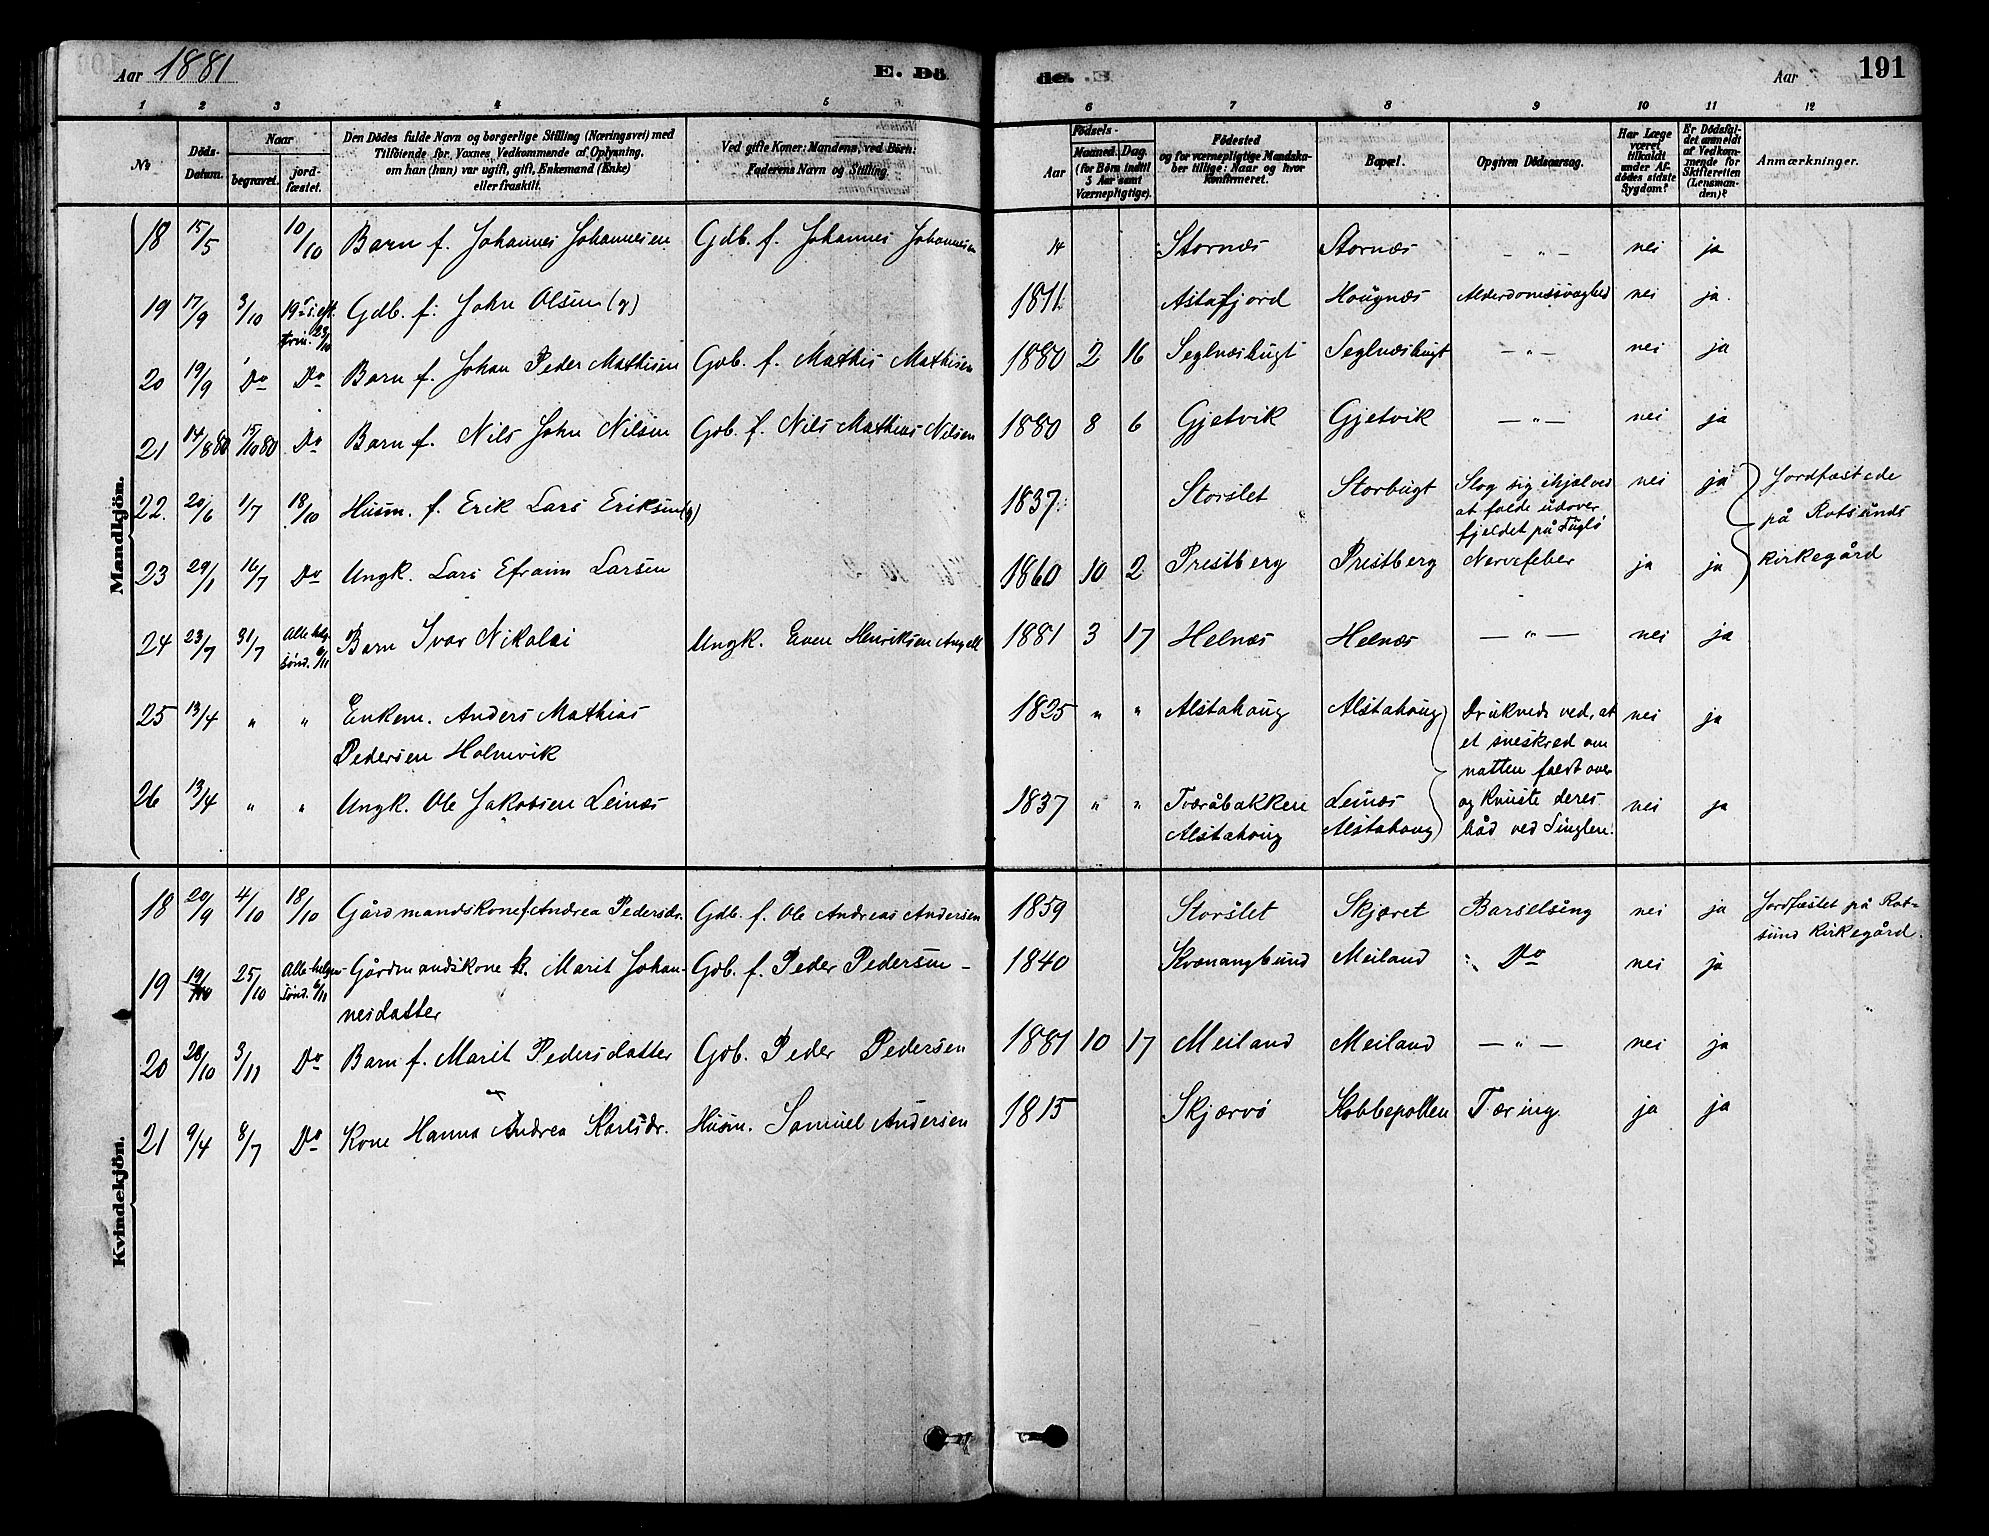 Aar 1881
E. Dö
de.
Aar
191
1 2 3 4 5 6 7 8 9 10 11 12
No
Döds-Datum.
Naar
begravet.
jordfæstet.
Den Dödes fulde Navn og borgerlige Stilling (Næringsvei) med
Tilföiende for Voxnes Vedkommende af Oplysning,
om han (hun) var ugift, gift, Enkemand (Enke)
eller fraskilt.
Ved gifte Koner: Mandens, ved Börn:
Faderens Navn og Stilling.
Födsels-
Aar
Maaned. Dag.
(for Börn indtil
5 Aar samt
Værnepligtige).
Födested
og for værnepligtige Mandskaber tillige: Naar og hvor
Konfirmeret.
Bopæl.
Opgiven Dödsaarsag.
Har Læge
været
tilkaldt
under Afdödes sidste
Sygdom?
Er Dödsfaldet anmeldt
af Vedkommende for
Skifteretten
(Lensmanden)?
Anmærkninger.
Mandkjön.
18 15/5 10/10 Barn f. Johannes Johannesen Gdb. f. Johannes Johannesen Stornæs Stornæs — " — nei ja
19 17/9 3/10 19de s. eft. trin. 23/10 Gdb. f. John Olsen (g) 1811 Astafjord Hougnæs Alderdomssvaghed nei ja.
20 19/9 Do Do Barn f. Johan Peder Mathisen Gdb. f. Mathis Mathisen 1880 2 16 Seglnæsbugt Seglnæsbugt — " — nei ja
21 14/8 80 15/10 80 Do Barn f. Nils John Nilsen Gdb. f. Nils Mathias Nilsen 1880 8 6 Gjetvik Gjetvik — " — nei ja
22. 20/6 1/7 18/10 Husm. f. Erik Lars Eriksen (g) 1837 Storslet Storbugt Slog sig ihjel ved
at falde udover
fjeldet på Fuglö nei ja Jordfæstede
på Rotsunds
kirkegård
23 29/1 16/7 Do Ungk. Lars Efraim Larsen 1860 10 2 Prestberg Prestberg Nervefeber ja ja
24 23/7 31/7 Alle helg. sönd. 6/11 Barn Ivar Nikolai Ungk. Even Henriksen Angell 1881 3 17 Helnæs Helnæs — " — nei ja
25 13/4 " " Enkem. Anders Mathias
Pedersen Holmvik 1825 " " Alstahoug Alstahoug Druknede ved, at
et sneskred om
natten faldt over
og knuste deres
båd ved nei ja
26 13/4 " " Ungk. Ole Jakobsen Leinæs 1837 " " Tveråbakken
Alstahoug Leinæs
Alstahoug nei ja
Kvindekjön.
18 20/9 4/10 18/10 Gårdmandskone f. Andrea Pedersdr. Gdb. f. Ole Andreas Andersen 1859 Storslet Skjæret Barselseng nei ja Jordfæstet på Rotsund kirkegård.
19 19/10 25/10 Alle helgen sönd. 6/11 Gårdmandskone k. Marit Johannesdatter Gdb. f. Peder Pedersen — 1840 Kvænangbund Meiland Do nei ja
20 28/10 3/11 Do Barn f. Marit Pedersdatter Gdb. Peder Pedersen 1881 10 17 Meiland Meiland — " — nei ja
21 9/4 8/7 Do Kone Hanna Andrea Karlsdr. Husm. Samuel Andersen 1815 Skjærvö Kobbepollen Tæring. ja ja